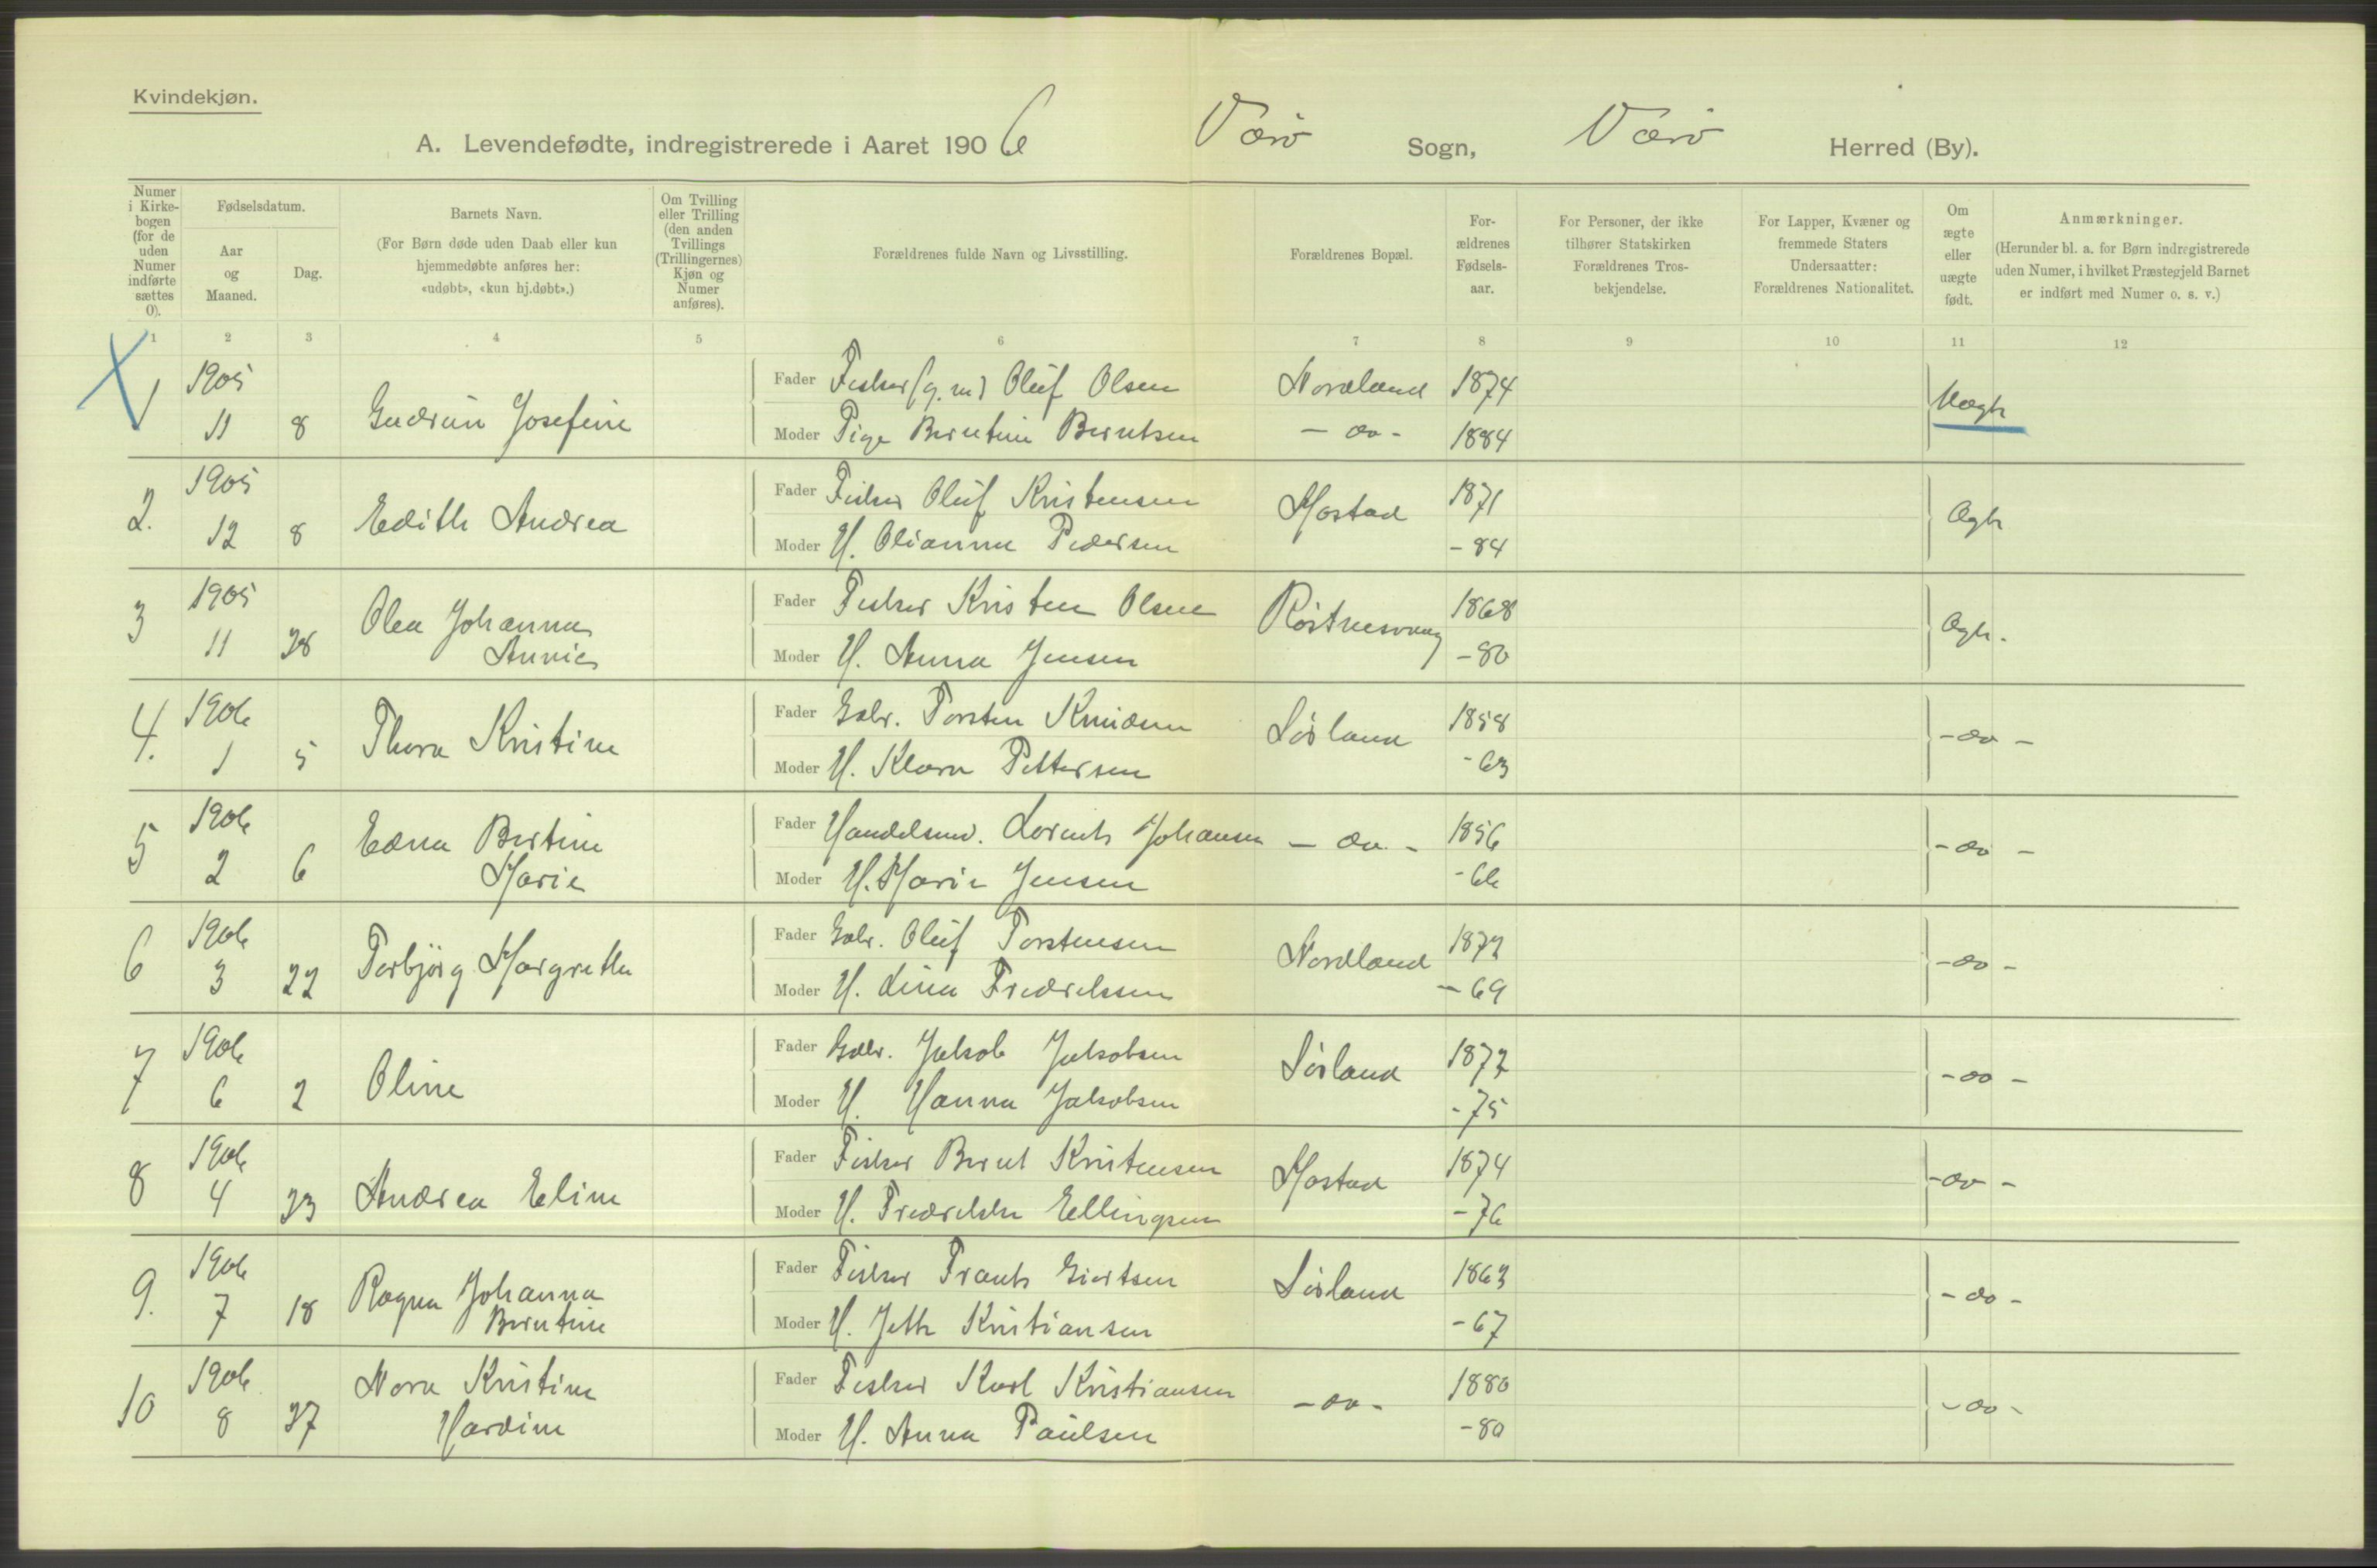 Kvindekjøn.
A. Levendefødte, indregistrerede i Aaret 1906 Værö Sogn, Værö Herred (By).
Numer i Kirkebogen (for de uden Numer indførte sættes 0).
Fødselsdatum.
Aar og Maaned.
Dag.
Barnets Navn.
(For Børn døde uden Daab eller kun hjemmedøbte anføres her: «udøbt», «kun hj.døbt».)
Om Tvilling eller Trilling (den anden Tvillings (Trillingernes) Kjøn og Numer anføres).
Forældrenes fulde Navn og Livsstilling.
Forældrenes Bopæl.
For-ældrenes Fødsels-aar.
For Personer, der ikke tilhører Statskirken Forældrenes Tros-bekjendelse.
For Lapper, Kvæner og fremmede Staters Undersaatter: Forældrenes Nationalitet.
Om ægte eller uægte født.
Anmærkninger.
(Herunder bl. a. for Børn indregistrerede uden Numer, i hvilket Præstegjeld Barnet er indført med Numer o. s. v.)
1 2 3 4 5 6 7 8 9 10 11 12
1 1905 Fader Fisker (g. m) Oluf Olsen Nordland 1874 Uægte
11 8 Gudrun Josefine Moder Pige Berntine Berntsen - do - 1884
2. 1905 Fader Fisker Oluf Kristensen Mostad 1871 Ægte
12 8 Edith Andrea Moder H. Olianna Pedersen - 84
3 1905 Olea Johanna Fader Fisker Kristen Olsen Röstnesvaag 1868 Ægte.
11 28 Annie Moder H. Anna Jensen - 80
4. 1906 Fader GaBr. Torsten Knudsen Sörland 1858 - do -
1 5 Thora Kristine Moder H. Klara Pettersen - 63
5 1906 Edna Bertine Fader Handelsmd. Lorents Johansen - do - 1856 - do -
2 6 Marie Moder H. Marie Jensen - 66
6 1906 Fader Gabr. Oluf Torstensen Nordland 1872 - do -
3 22 Torbjörg Margrethe Moder H. Lina Fredriksen - 69
7 1906 Fader Gabr. Jakob Jakobsen Sörland 1872 - do -
6 2 Oline Moder H. Hanna Jakobsen - 75
8 1906 Fader Fisker Bernt Kristensen Mostad 1874 - do -
4 23 Andrea Eline Moder H. Fredrikke Ellingsen - 76
9. 1906 Ragna Johanna Fader Fisker Frants Giertsen Sörland 1863 - do -
7 18 Berntine Moder H. Jette Kristiansen - 67
10 1906 Nora Kristine Fader Fisker Karl Kristiansen - do - 1880 - do -
8 27 Hardine Moder H. Anna Paulsen - 80